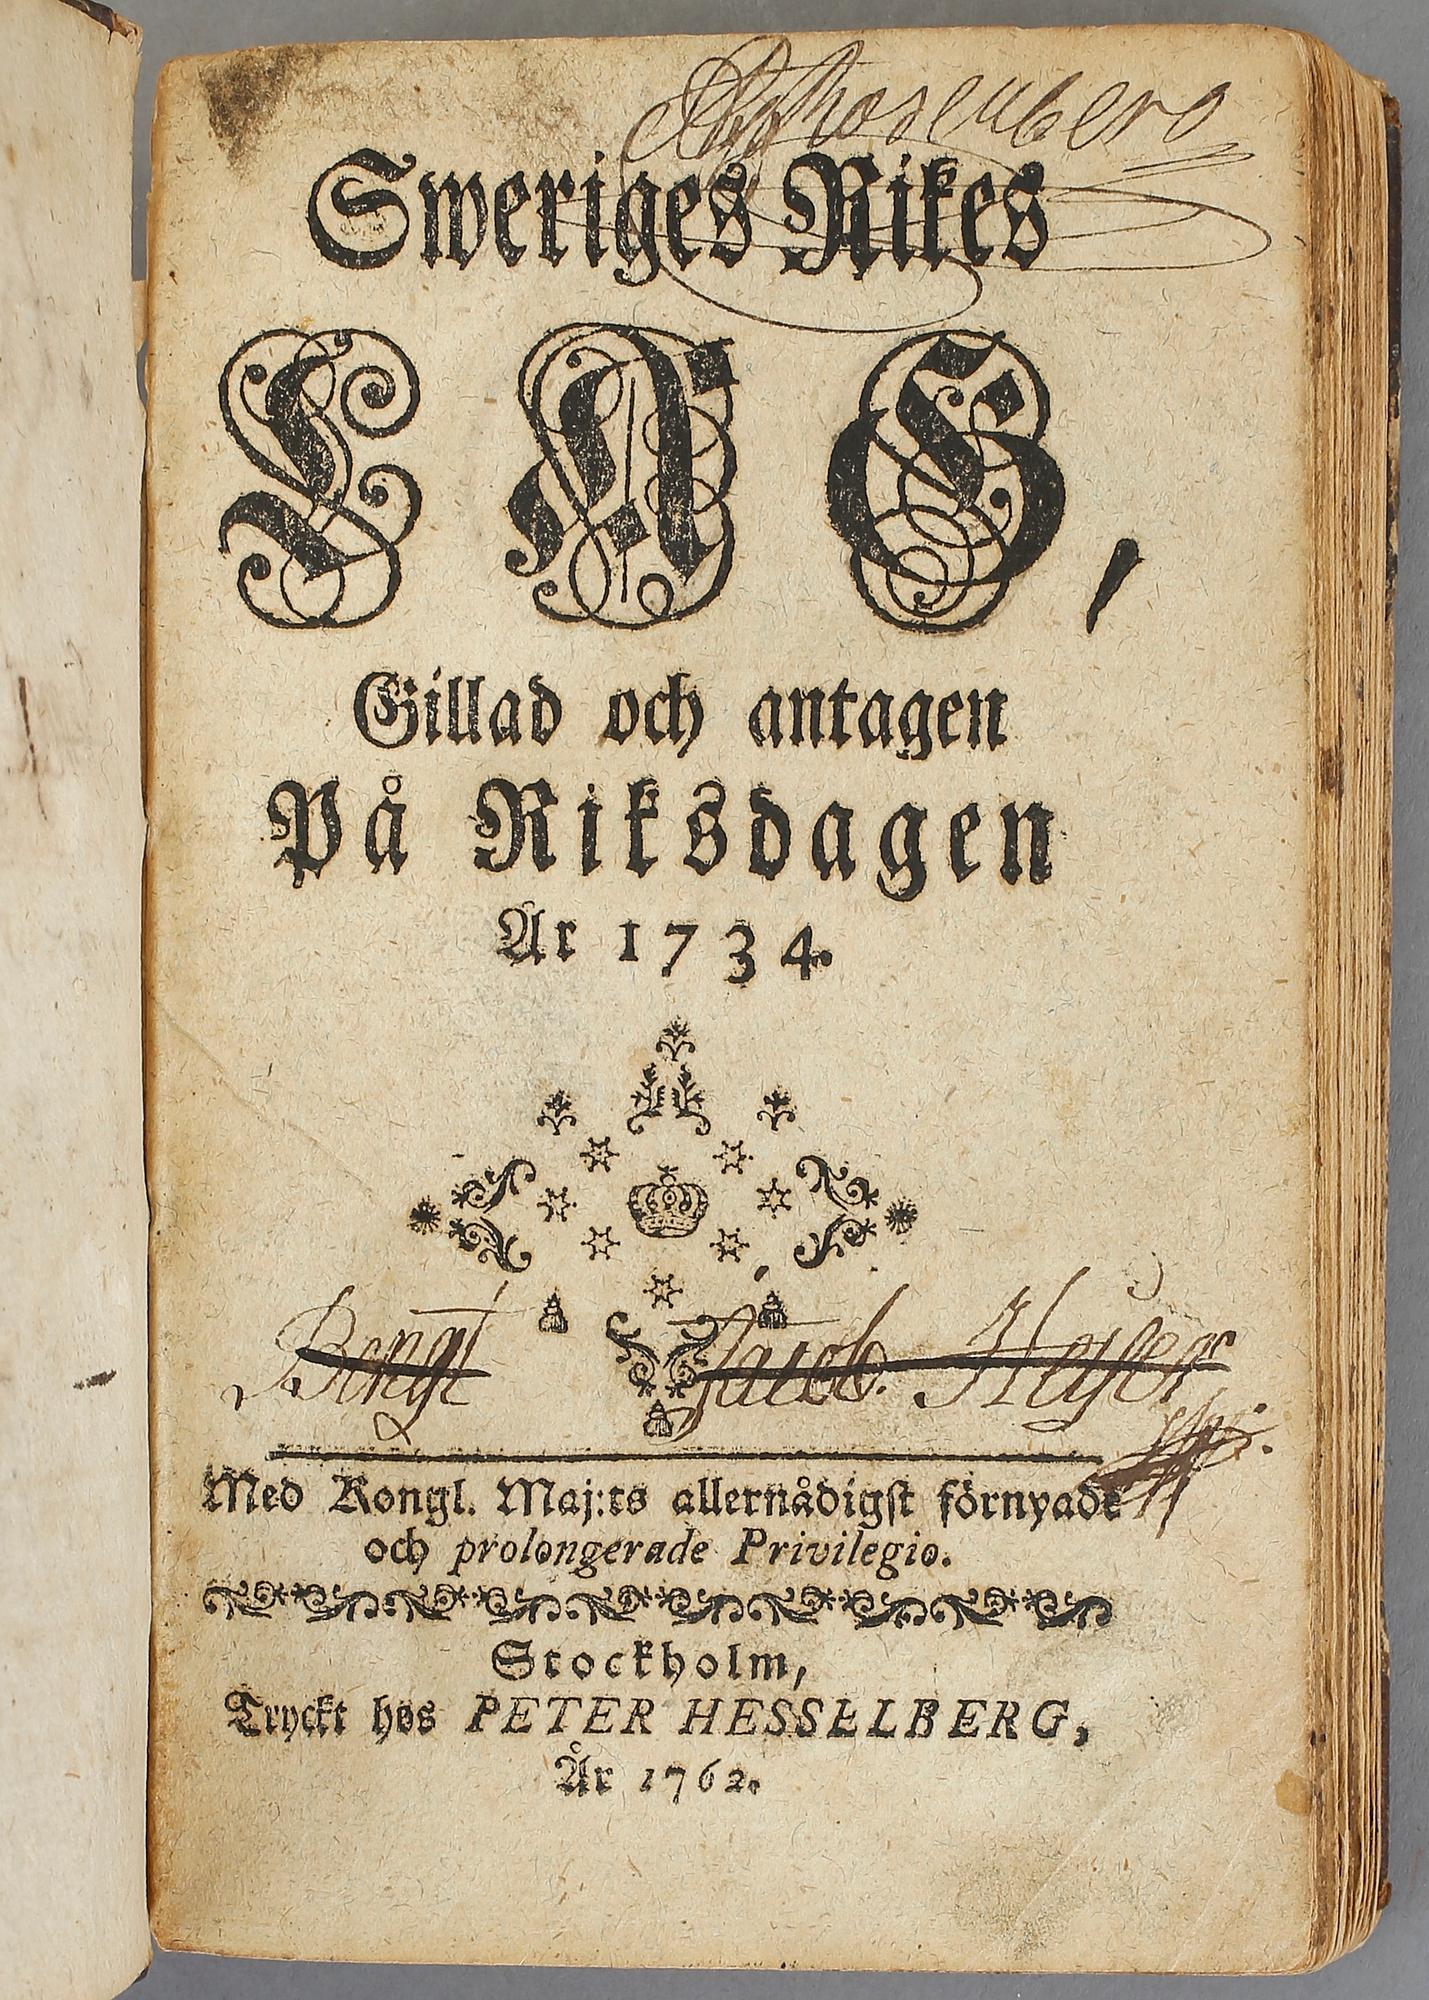 Sweriges Rikes
LAG,
Gillad och antagen
På Riksdagen
År 1734.
Bengt Jacob. Heyser
Med Kongl. Maj:ts allernådigst förnyade
och prolongerade Privilegio.
Stockholm,
Tryckt hos PETER HESSELBERG,
År 1762.